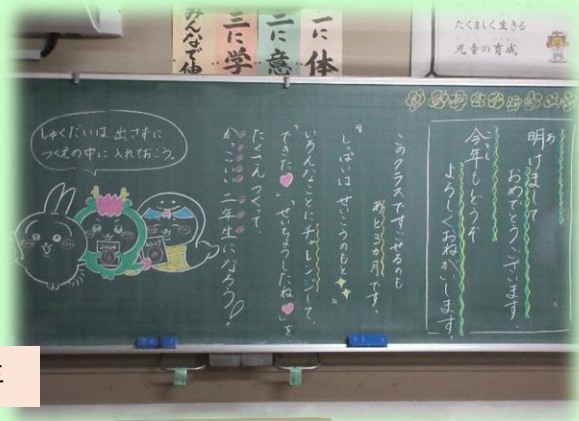 一に体
二に意
三に学
みんなで仲
たくましく生きる
児童の育成
明けまして
あ
おめでとうございます。
今年もどうぞ
ことし
よろしくおねがいします。
このクラスですごせるのも
あと3カ月です。
“しっぱいは せいこうのもと”
いろんなことにチャレンジして、
「できた♥」「せいちょうしたね♥」を
たくさんつくって、
かっこいい 二年生になろう!
しゅくだいは 出さずに
つくえの中に 入れておこう。
2024